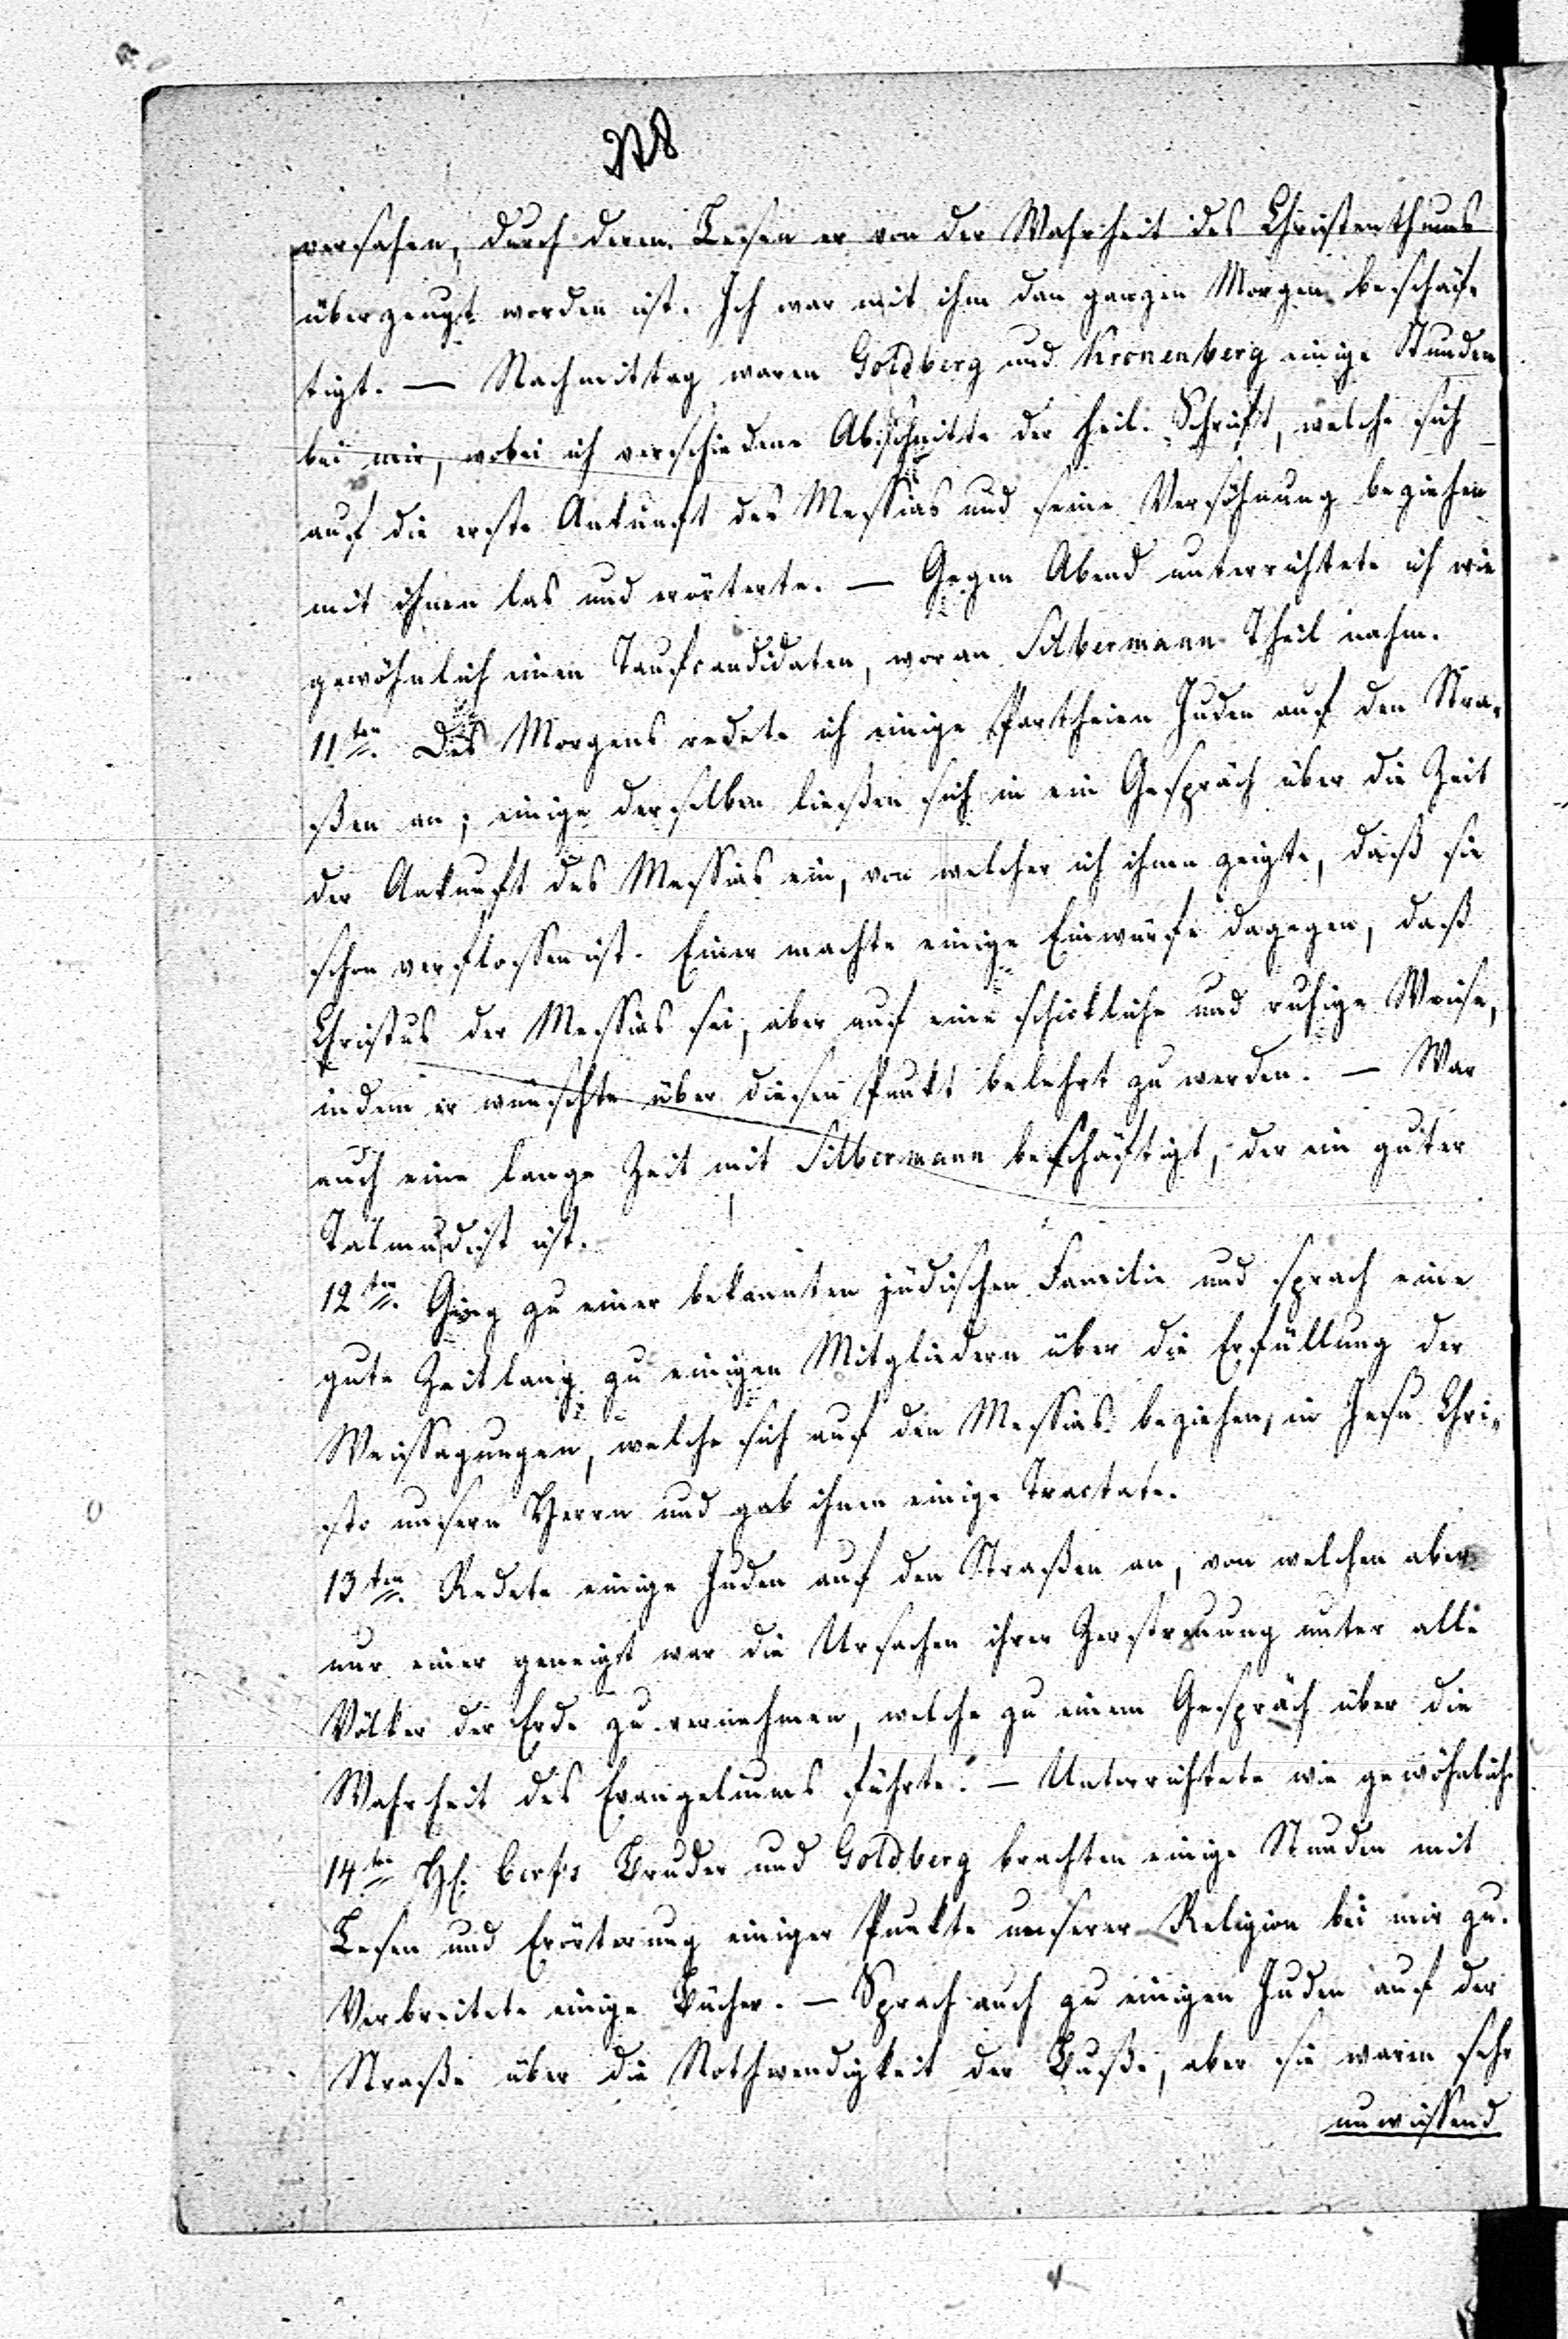 versehen, durch deren Lesen er von der Wahrheit des Christenthums
überzeugt worden ist. Ich war mit ihm den ganzen Morgen beschäf-
tigt. — Nachmittag waren Goldberg und Kronenberg einige Stunden
bei mir, wobei ich verschiedene Abschnitte der heil. Schrift, welche sich
auf die erste Ankunft des Messias und seine Versöhnung beziehen
mit ihnen las und erörterte. — Gegen Abend unterrichtete ich wie
gewöhnlich einen Taufcandidaten, woran Silbermann Theil nahm.
11ten. Des Morgens redete ich einige Partheien Juden auf den Stra-
ßen an; einige derselben ließen sich in ein Gespräch über die Zeit
der Ankunft des Messias ein, von welcher ich ihnen zeigte, daß sie
schon verflossen ist. Einer machte einige Einwürfe dagegen, daß
Christus der Messias sei, aber auf eine schickliche und ruhige Weise,
indem er wünschte über diesen Punkt belehrt zu werden. — War
auch eine lange Zeit mit Silbermann beschäftigt, der ein guter
Talmudist ist.
12ten. Ging zu einer bekannten jüdischen Familie und sprach eine
gute Zeitlang zu einigen Mitgliedern über die Erfüllung der
Weissagungen, welche sich auf den Messias beziehen, in Jesu Chri-
sto unsern Herrn und gab ihnen einige Tractate.
13ten. Redete einige Juden auf den Straßen an, von welchen aber
nur einer geneigt war die Ursachen ihrer Zerstreuung unter alle
Völker der Erde zu vernehmen, welche zu einem Gespräch über die
Wahrheit des Evangeliums führte. — Unterrichtete wie gewöhnlich.
14ten Bruder und Goldberg brachten einige Stunden mit
Lesen und Erörterung einiger Punkte unserer Religion bei mir zu.
Verbreitete einige Bücher. — Sprach auch zu einigen Juden auf der
Straße über die Nothwendigkeit der Buße, aber sie waren sehr
unwissend